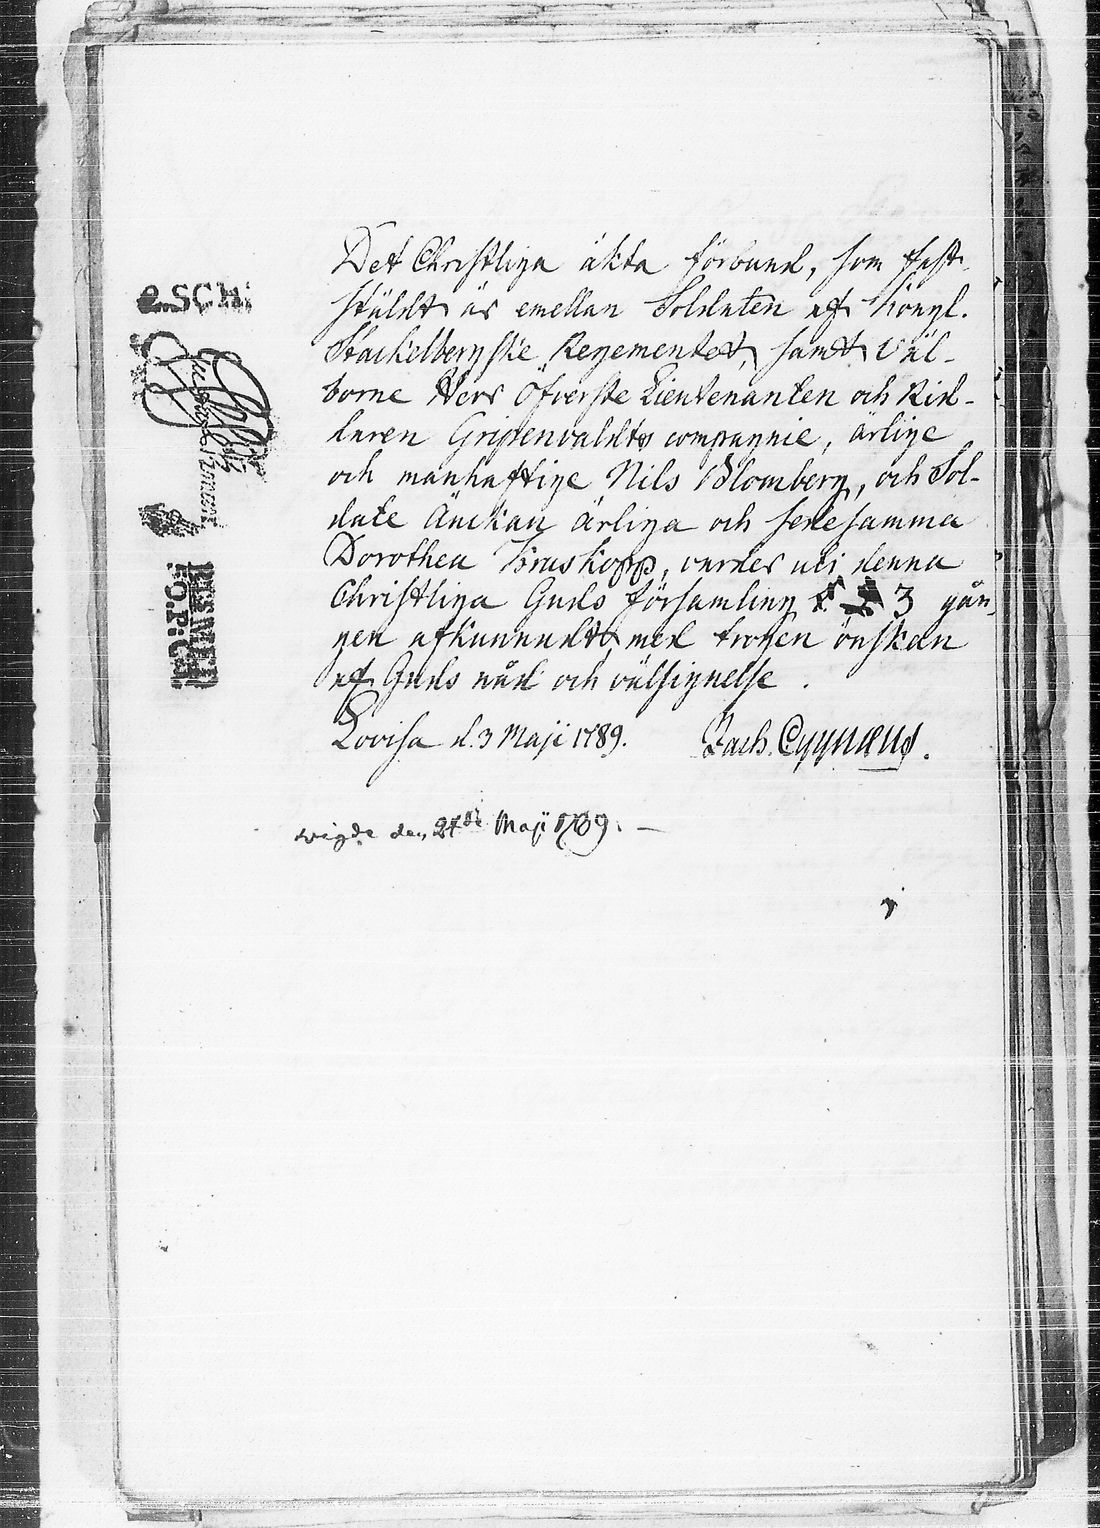 Det Christliga äkta förbund, som fast-
stäldt är emellan Soldaten af Kongl.
Stackelbergske Regementet, samt Väl-
borne Herr Öfverste Lieutenanten och Rid-
daren Gripenvaldts compagnie, ärlige
och manhaftige Nils Blomberg, och Sol-
date Änckan ärliga och sedesamma
Dorothea Kraskopp, varder uti denna
Christliga Guds församling 3 gån-
gen afkunnadt, med trogen önskan
af Guds nåd och välsignelse.
Lovisa d. 3 Maji 1789. Zach. Cygnæus.
wigde den 24de Maji 1789. —